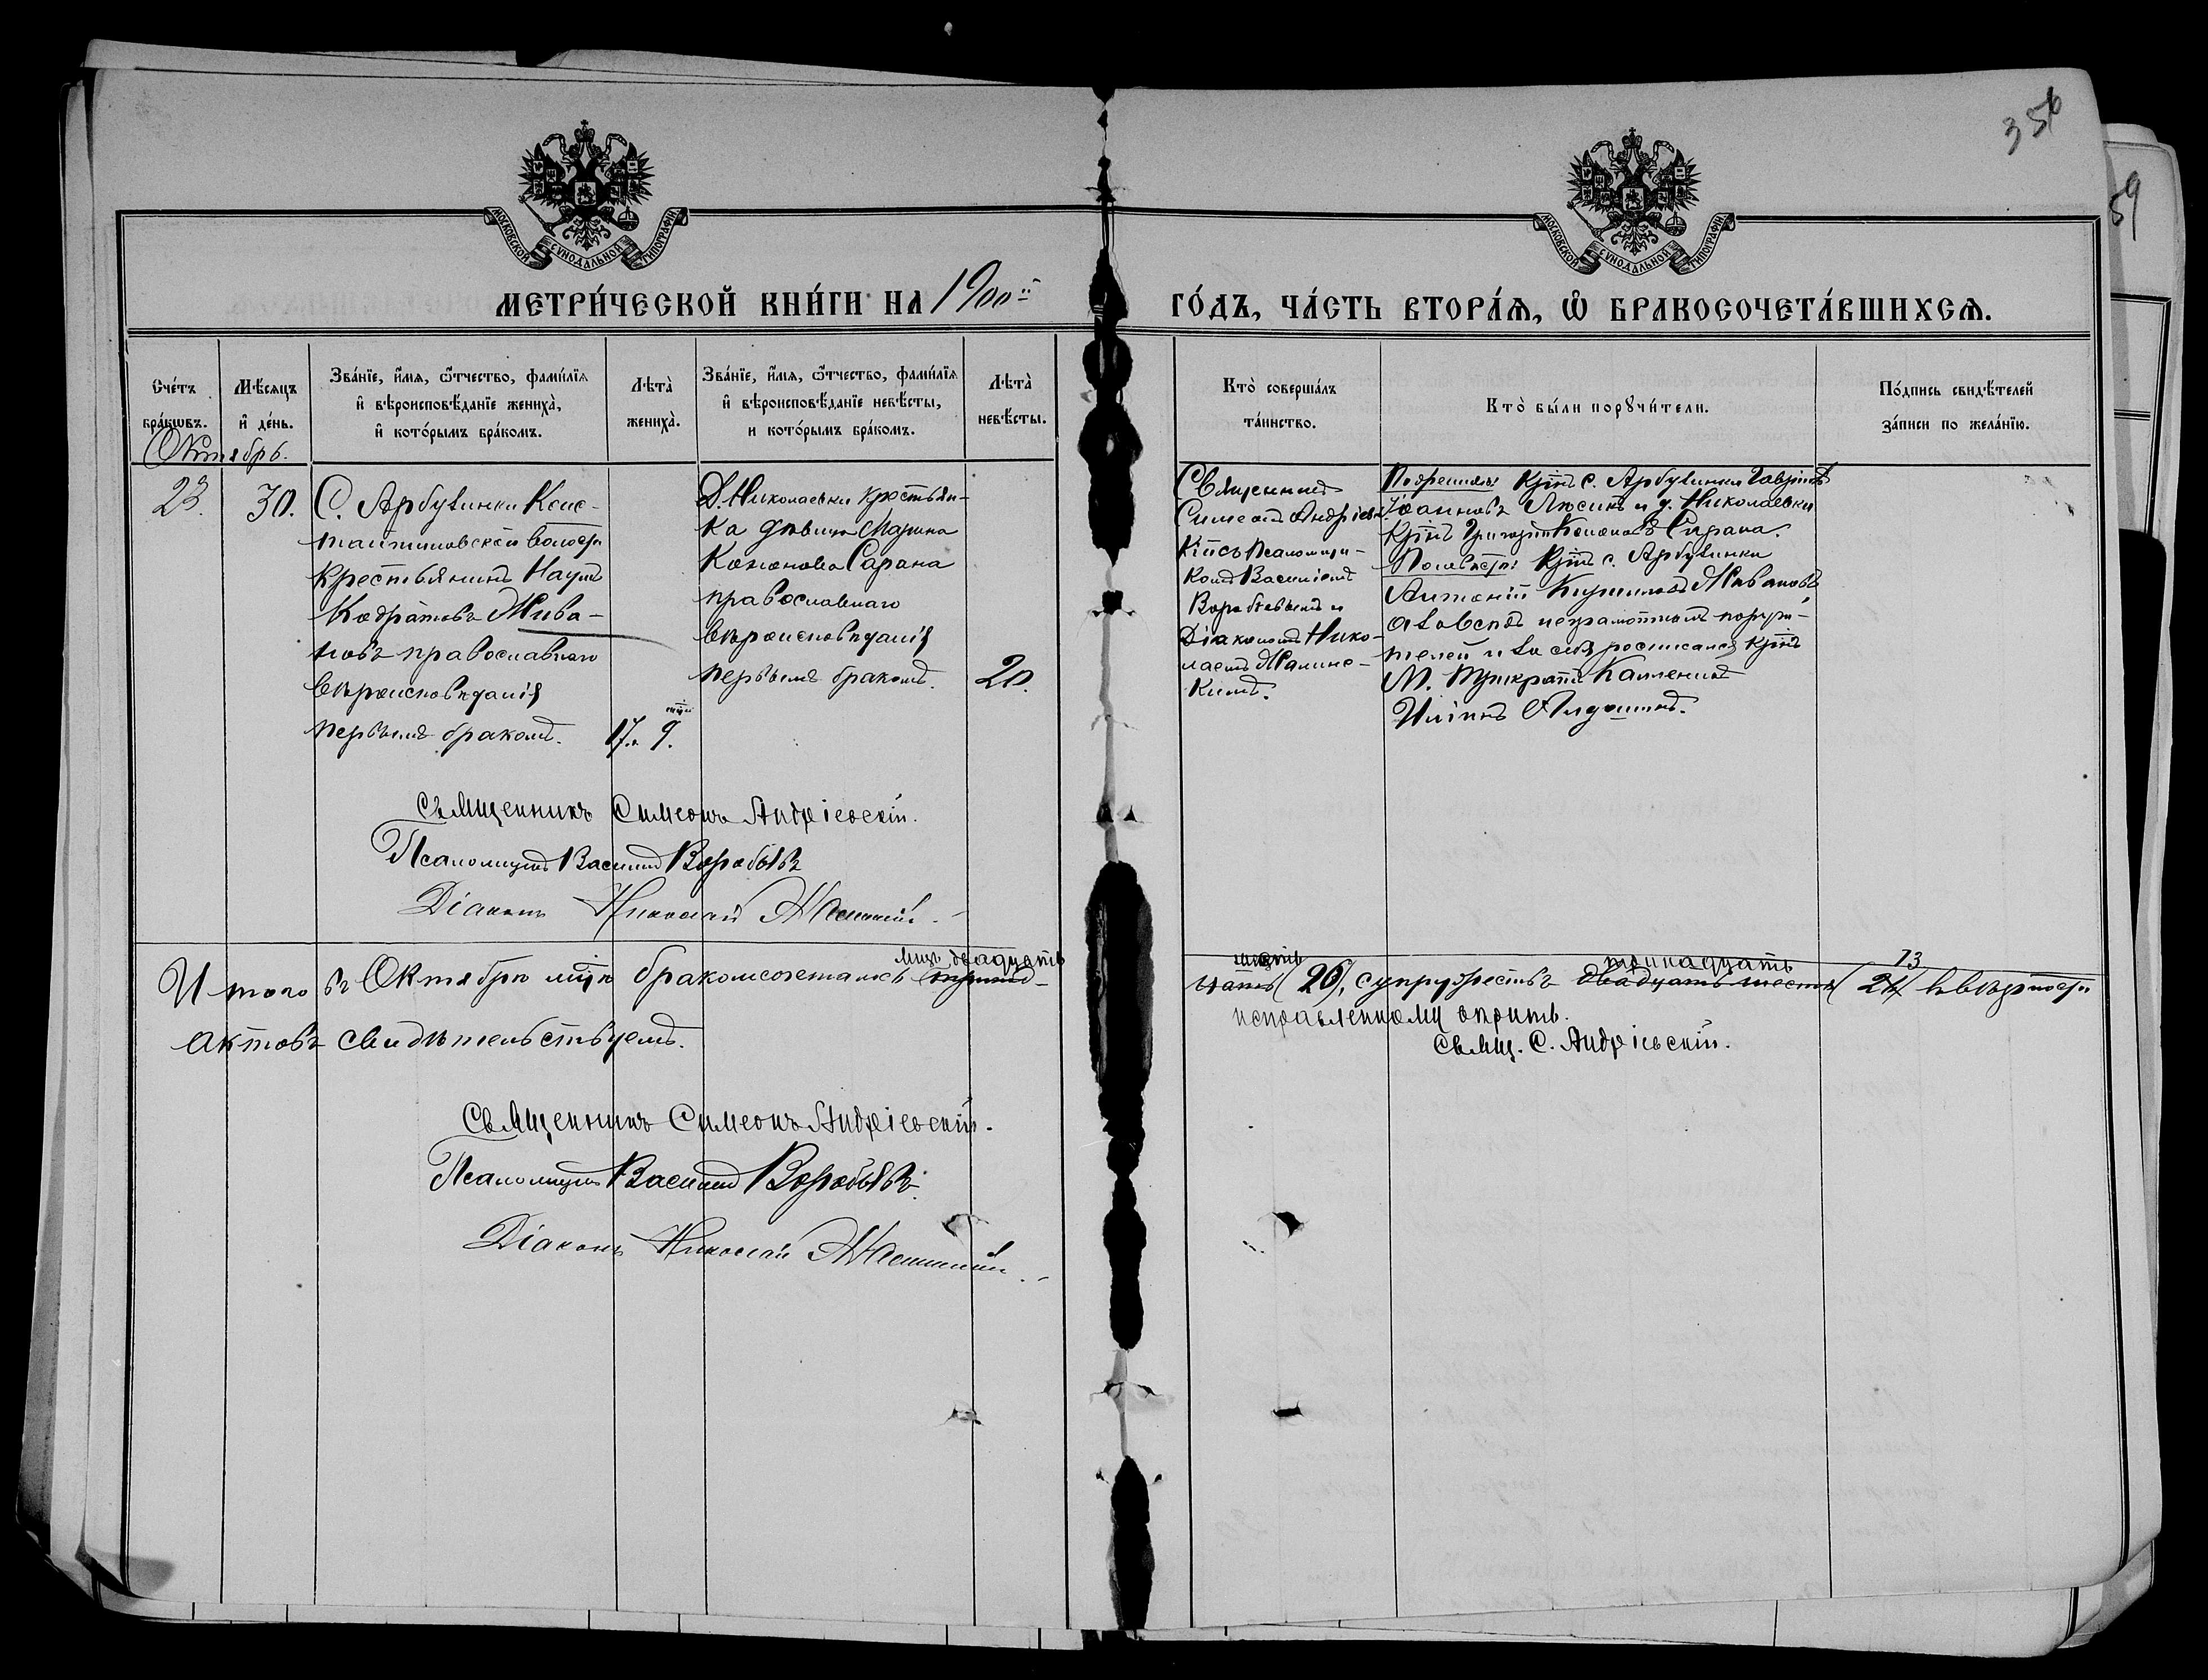 356
59
МОСКОВСКОЙ СѴНОДАЛЬНОЙ ТИПОГРАФІИ
МОСКОВСКОЙ СѴНОДАЛЬНОЙ ТИПОГРАФІИ
МЕТРИ́ЧЕСКОЙ КНИ́ГИ НА 1900й
ГО́ДЪ, ЧА́СТЬ ВТОРА́Я, Ѡ҆ БРАКОСОЧЕТА́ВШИХСЯ.
Сче́тъ бра́кѡвъ.
Мѣ́сяцъ и҆ де́нь.
Зва́нїе, и҆́мя, ѻ҆́тчество, фамі́лїя и҆ вѣроисповѣ́данїе жениха̀, и҆ кото́рымъ бра́комъ.
Лѣ́та̀ жениха̀.
Зва́нїе, и҆́мя, ѻ҆́тчество, фамі́лїя и҆ вѣроисповѣ́данїе невѣ́сты, и кото́рымъ бра́комъ.
Лѣ́та̀ невѣ́сты.
Кто̀ соверша́лъ та́инство.
Кто̀ бы́ли порꙋчи́тели.
По́дпись свидѣ́телей за́писи по жела́нїю.
Октябрь.
23.
30.
С. Арбузинки Конс-
тантиновской волости
крестьянинъ Наумъ
Кодратовъ Жива-
новъ православнаго
вѣроисповѣданія
первымъ бракомъ.
17. 9.
Д. Николаевки крестьян-
ка дѣвица Марина
Кононова Сарана
православнаго
вѣроисповѣданія
первымъ бракомъ.
20.
Священникъ
Симеонъ Андріевс
кій съ псаломщи-
комъ Василіемъ
Воробьевымъ и
Діакономъ Нико-
лаемъ
кимъ.
По женихѣ: крнъ с. Арбузинки Гавріилъ
Іоанновъ и д. Николаевки
крнъ Григорій Кононовъ Сарана.
По невѣстѣ: крнъ с. Арбузинки
Антоній Живановъ
неграмотныхъ поручи-
телей и за себя росписался крнъ
М.
Священникъ Симеонъ Андріевскій.
Псаломщикъ Василій Воробьевъ
Діаконъ Николай
Итого въ Октябрѣ мцѣ бракомсочеталось лицъ двадцать
шесть (26), супружествъ тринадцать двадцать шесть 13 вѣрности
исправленному вѣрить.
актовъ свидѣтельствуемъ.
Свящ. С. Андріевскій.
Священникъ Симеонъ Андріевскій.
Псаломщикъ Василій Воробьевъ.
Діаконъ Николай